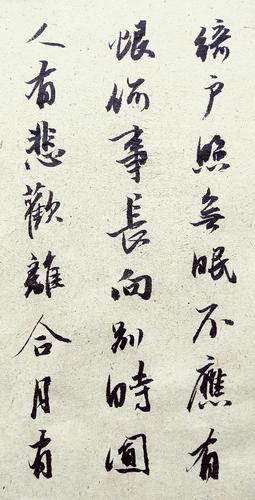 绮户照无眠不應有
恨何事長向别時圆
人有悲歡離合月有